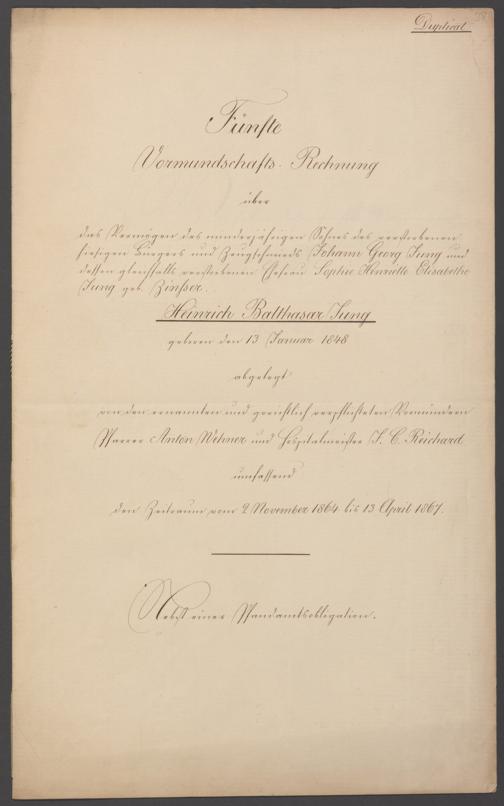 Duplicat
Fünfte
Vormundschafts-Rechnung
über
das Vermögen des minderjährigen Sohnes des verstorbenen
hiesigen Bürgers und Zeugschmieds Johann Georg Jung und
dessen gleichfalls verstorbenen Ehefrau Sophie Henriette Elisabethe
Jung geb. Zinßer.
Heinrich Balthasar Jung
geboren den 13 Januar 1848
abgelegt
von den ernannten und gerichtlich verpflichteten Vormündern
Pfarrer Anton Wehner und Hospitalmeister J. C. Reichard
umfassend
den Zeitraum vom 2 November 1864 bis 13 April 1867.
Nebst einer Pfandamtsobligation.